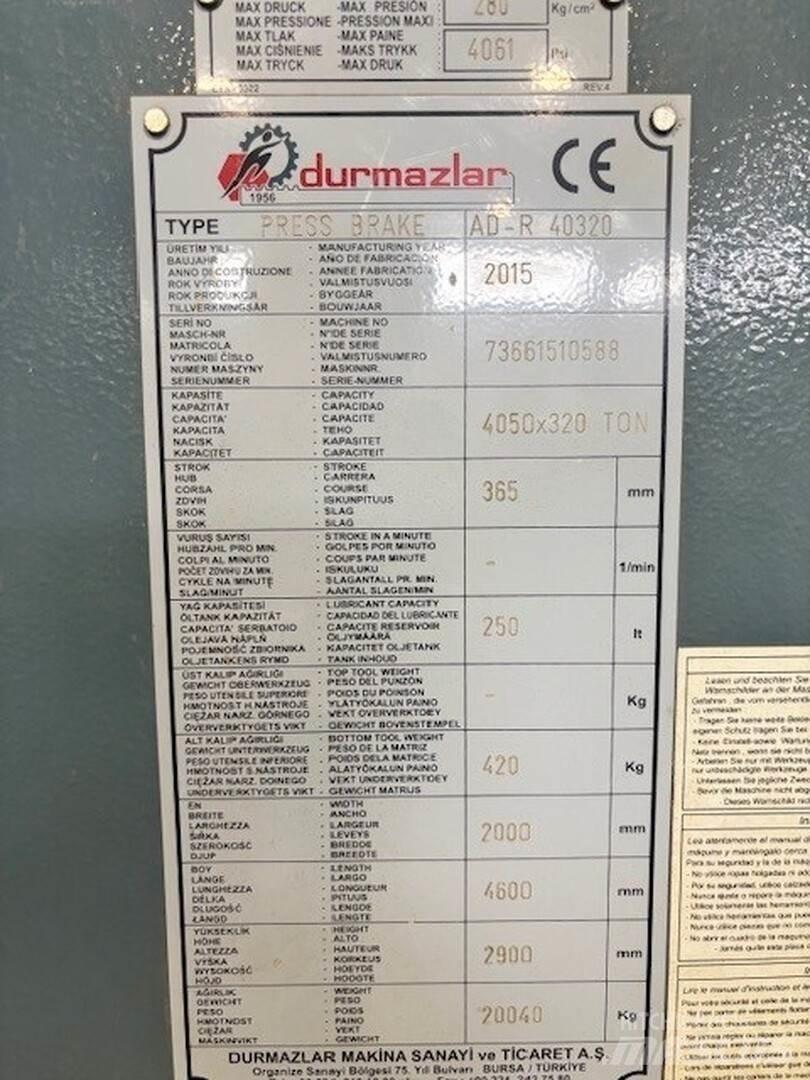 MAX DRUCK -MAX PRESIÓN 280 Kg/cm²
MAX PRESSIONE -PRESSION MAXI
MAX TLAK -MAX PAINE
MAX CIŚNIENIE -MAKS TRYKK 4061 Psi
MAX TRYCK -MAX DRUK
REV.4
durmazlar CE
1956
TYPE PRESS BRAKE AD-R 40320
ÜRETİM YILI - MANUFACTURING YEAR
BAUJAHR - AÑO DE FABRICACIÓN
ANNO DI COSTRUZIONE - ANNEE FABRICATION
ROK VÝROBY - VALMISTUSVUOSI 2015
ROK PRODUKCJI - BYGGEÅR
TILLVERKNINGSÅR - BOUWJAAR
SERİ NO - MACHINE NO
MASCH-NR - N'IDE SERIE
MATRICOLA - N'DE SERIE
VYRONBÍ ČÍSLO - VALMISTUSNUMERO 73661510588
NUMER MASZYNY - MASKINNR.
SERIENUMMER - SERIE-NUMMER
KAPASİTE - CAPACITY
KAPAZITÄT - CAPACIDAD
CAPACITA' - CAPACITE
KAPACITA - TEHO 4050x320 TON
NACISK - KAPASITET
KAPACITET - CAPACITEIT
STROK - STROKE
HUB - CARRERA
CORSA - COURSE 365 mm
ZDVIH - ISKUNPITUUS
SKOK - SLAG
SKOK - SLAG
VURUŞ SAYISI - STROKE IN A MINUTE
HUBZAHL PRO MIN. - GOLPES POR MINUTO
COLPI AL MINUTO - COUPS PAR MINUTE
POČET ZDVIHU ZA MIN. - ISKULUKU - 1/min
CYKLE NA MINUTĘ - SLAGANTALL PR. MIN.
SLAG/MINUT - AANTAL SLAGEN/MIN
YAĞ KAPASİTESİ - LUBRICANT CAPACITY
ÖLTANK KAPAZITÄT - CAPACIDAD DEL LUBRICANTE
CAPACITA' SERBATOIO - CAPACITE RESERVOIR
OLEJAVÁ NÁPLŇ - ÖLJYMÄÄRÄ 250 lt
POJEMNOŚĆ ZBIORNIKA - KAPACITET OLJETANK
OLJETANKENS RYMD - TANK INHOUD
ÜST KALIP AĞIRLIĞI - TOP TOOL WEIGHT
GEWICHT OBERWERKZEUG - PESO DEL PUNZÓN
PESO UTENSILE SUPERIORE - POIDS DU POINSON
HMOTNOST H.NÁSTROJE - YLÄTYÖKALUN PAINO - Kg
CIĘŻAR NARZ. GÓRNEGO - VEKT OVERVERKTOEY
ÖVERVERKTYGETS VIKT - GEWICHT BOVENSTEMPEL
ALT KALIP AĞIRLIĞI - BOTTOM TOOL WEIGHT
GEWICHT UNTERWERKZEUG - PESO DE LA MATRIZ
PESO UTENSILE INFERIORE - POIDS DELA MATRICE
HMOTNOST S.NÁSTROJE - ALATYÖKALUN PAINO 420 Kg
CIĘŻAR NARZ. DOINEGO - VEKT UNDERVERKTOEY
UNDERVERKTYGETS VIKT - GEWICHT MATRIJS
EN - WIDTH
BREITE - ANCHO
LARGHEZZA - LARGEUR
ŠÍRKA - LEVEYS 2000 mm
SZEROKOŚĆ - BREDDE
DJUP - BREEDTE
BOY - LENGTH
LÄNGE - LARGO
LUNGHEZZA - LONGUEUR
DÉLKA - PITUUS 4600 mm
DŁUGOŚĆ - LENGDE
LÄNGD - LENGTE
YÜKSEKLİK - HEIGHT
HÖHE - ALTO
ALTEZZA - HAUTEUR
VÝŠKA - KORKEUS 2900 mm
WYSOKOŚĆ - HOEYDE
HÖJD - HOOGTE
AĞIRLIK - WEIGHT
GEWICHT - PESO
PESO - POIDS
HMOTNOST - PAINO 20040 Kg
CIĘŻAR - VEKT
MASKINVIKT - GEWICHT
DURMAZLAR MAKİNA SANAYİ ve TİCARET A.Ş.
Organize Sanayi Bölgesi 75. Yıl Bulvarı BURSA / TÜRKİYE
Lesen und beachten Sie
Warnschilder an der
zu vermeiden
- Tragen Sie keine weite
eigenen Schutz tragen Sie bei
- Arbeiten Sie nur mit
nur unbeschädigte Werkzeuge
- Unterlassen Sie jegliche
- Bevor die Maschine nicht
- Dieses Warnschild
Lea atentamente el manual
máquina y manténgalo cerca
Para su seguridad y la de la
- No utilice ropas holgadas ni
- Por su seguridad, utilice
- Nunca ajuste o repare la
- Utilice solamente las
- No utilice herramientas que
- Nunca utilice piezas que no
- No abrir el cuadro de la
- Jamás quite esta
Lire le manuel d'instruction et
Pour votre sécurité et celle de la
- Ne pas porter de vêtements
- Porter des chaussures de sécurité